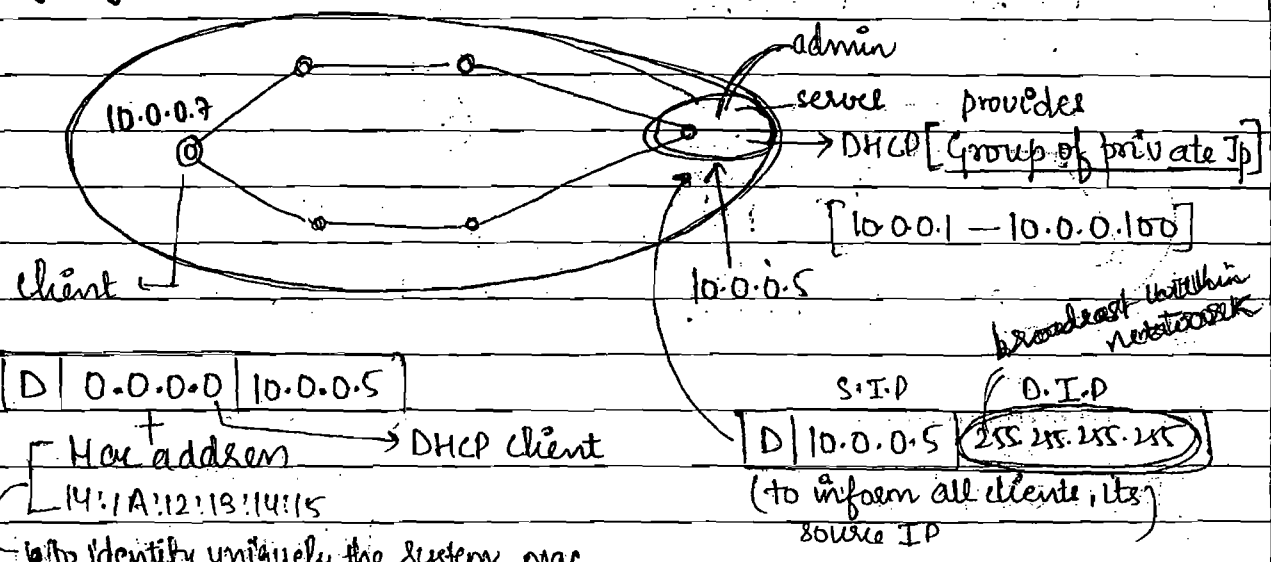 admin
server provides
10.0.0.7
DHCP [Group of private Ip]
[10.0.0.1 — 10.0.0.100]
client
10.0.0.5
broadcast within
network
D | 0.0.0.0 | 10.0.0.5
S.I.P D.I.P
+
D | 10.0.0.5 | 255.255.255.255
Mac address
DHCP Client
14:1A:12:13:14:15
(to inform all clients, its
source IP)
to identify uniquely the system mac